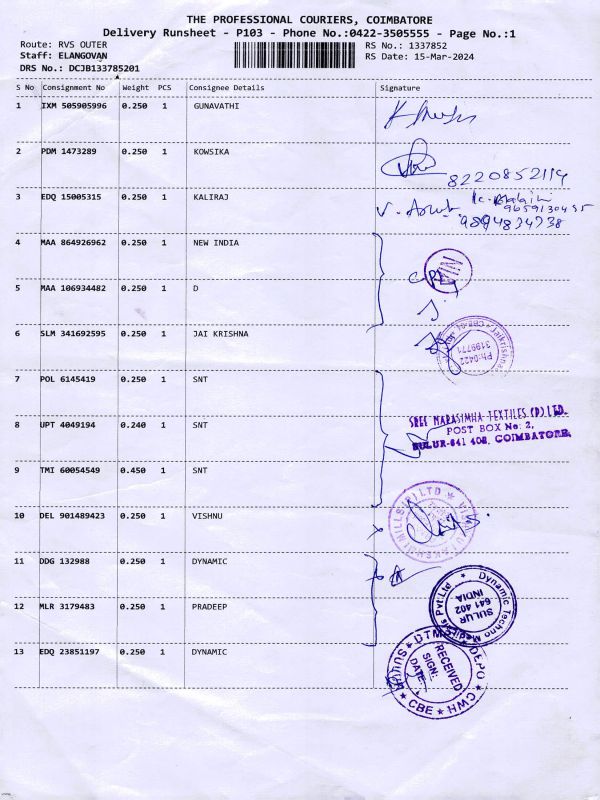 THE PROFESSIONAL COURIERS, COIMBATORE
Delivery Runsheet - P103 - Phone No.:0422-3505555 - Page No.:1
Route: RVS OUTER
RS No.: 1337852
Staff: ELANGOVAN
RS Date: 15-Mar-2024
DRS No.: DCJB133785201
S No Consignment No Weight PCS Consignee Details Signature
1 IXM 505905996 0.250 1 GUNAVATHI
2 PDM 1473289 0.250 1 KOWSIKA
8220852114
3 EDQ 15005315 0.250 1 KALIRAJ
9659130435
9894834738
4 MAA 864926962 0.250 1 NEW INDIA
5 MAA 106934482 0.250 1 D
6 SLM 341692595 0.250 1 JAI KRISHNA
Jaikrishna
Ph:0422
3199771
7 POL 6145419 0.250 1 SNT
8 UPT 4049194 0.240 1 SNT
SREE NARASIMHA TEXTILES (P) LTD.
POST BOX No: 2,
SULUR-641 402, COIMBATORE.
9 TMI 60054549 0.450 1 SNT
10 DEL 901489423 0.250 1 VISHNU
11 DDG 132988 0.250 1 DYNAMIC
12 MLR 3179483 0.250 1 PRADEEP
Dynamic Techno Medicals Pvt Ltd
SULUR
641 402
INDIA
13 EDQ 23851197 0.250 1 DYNAMIC
DTMS DEPO HWC CBE SULUR
RECEIVED
SIGN:
DATE: